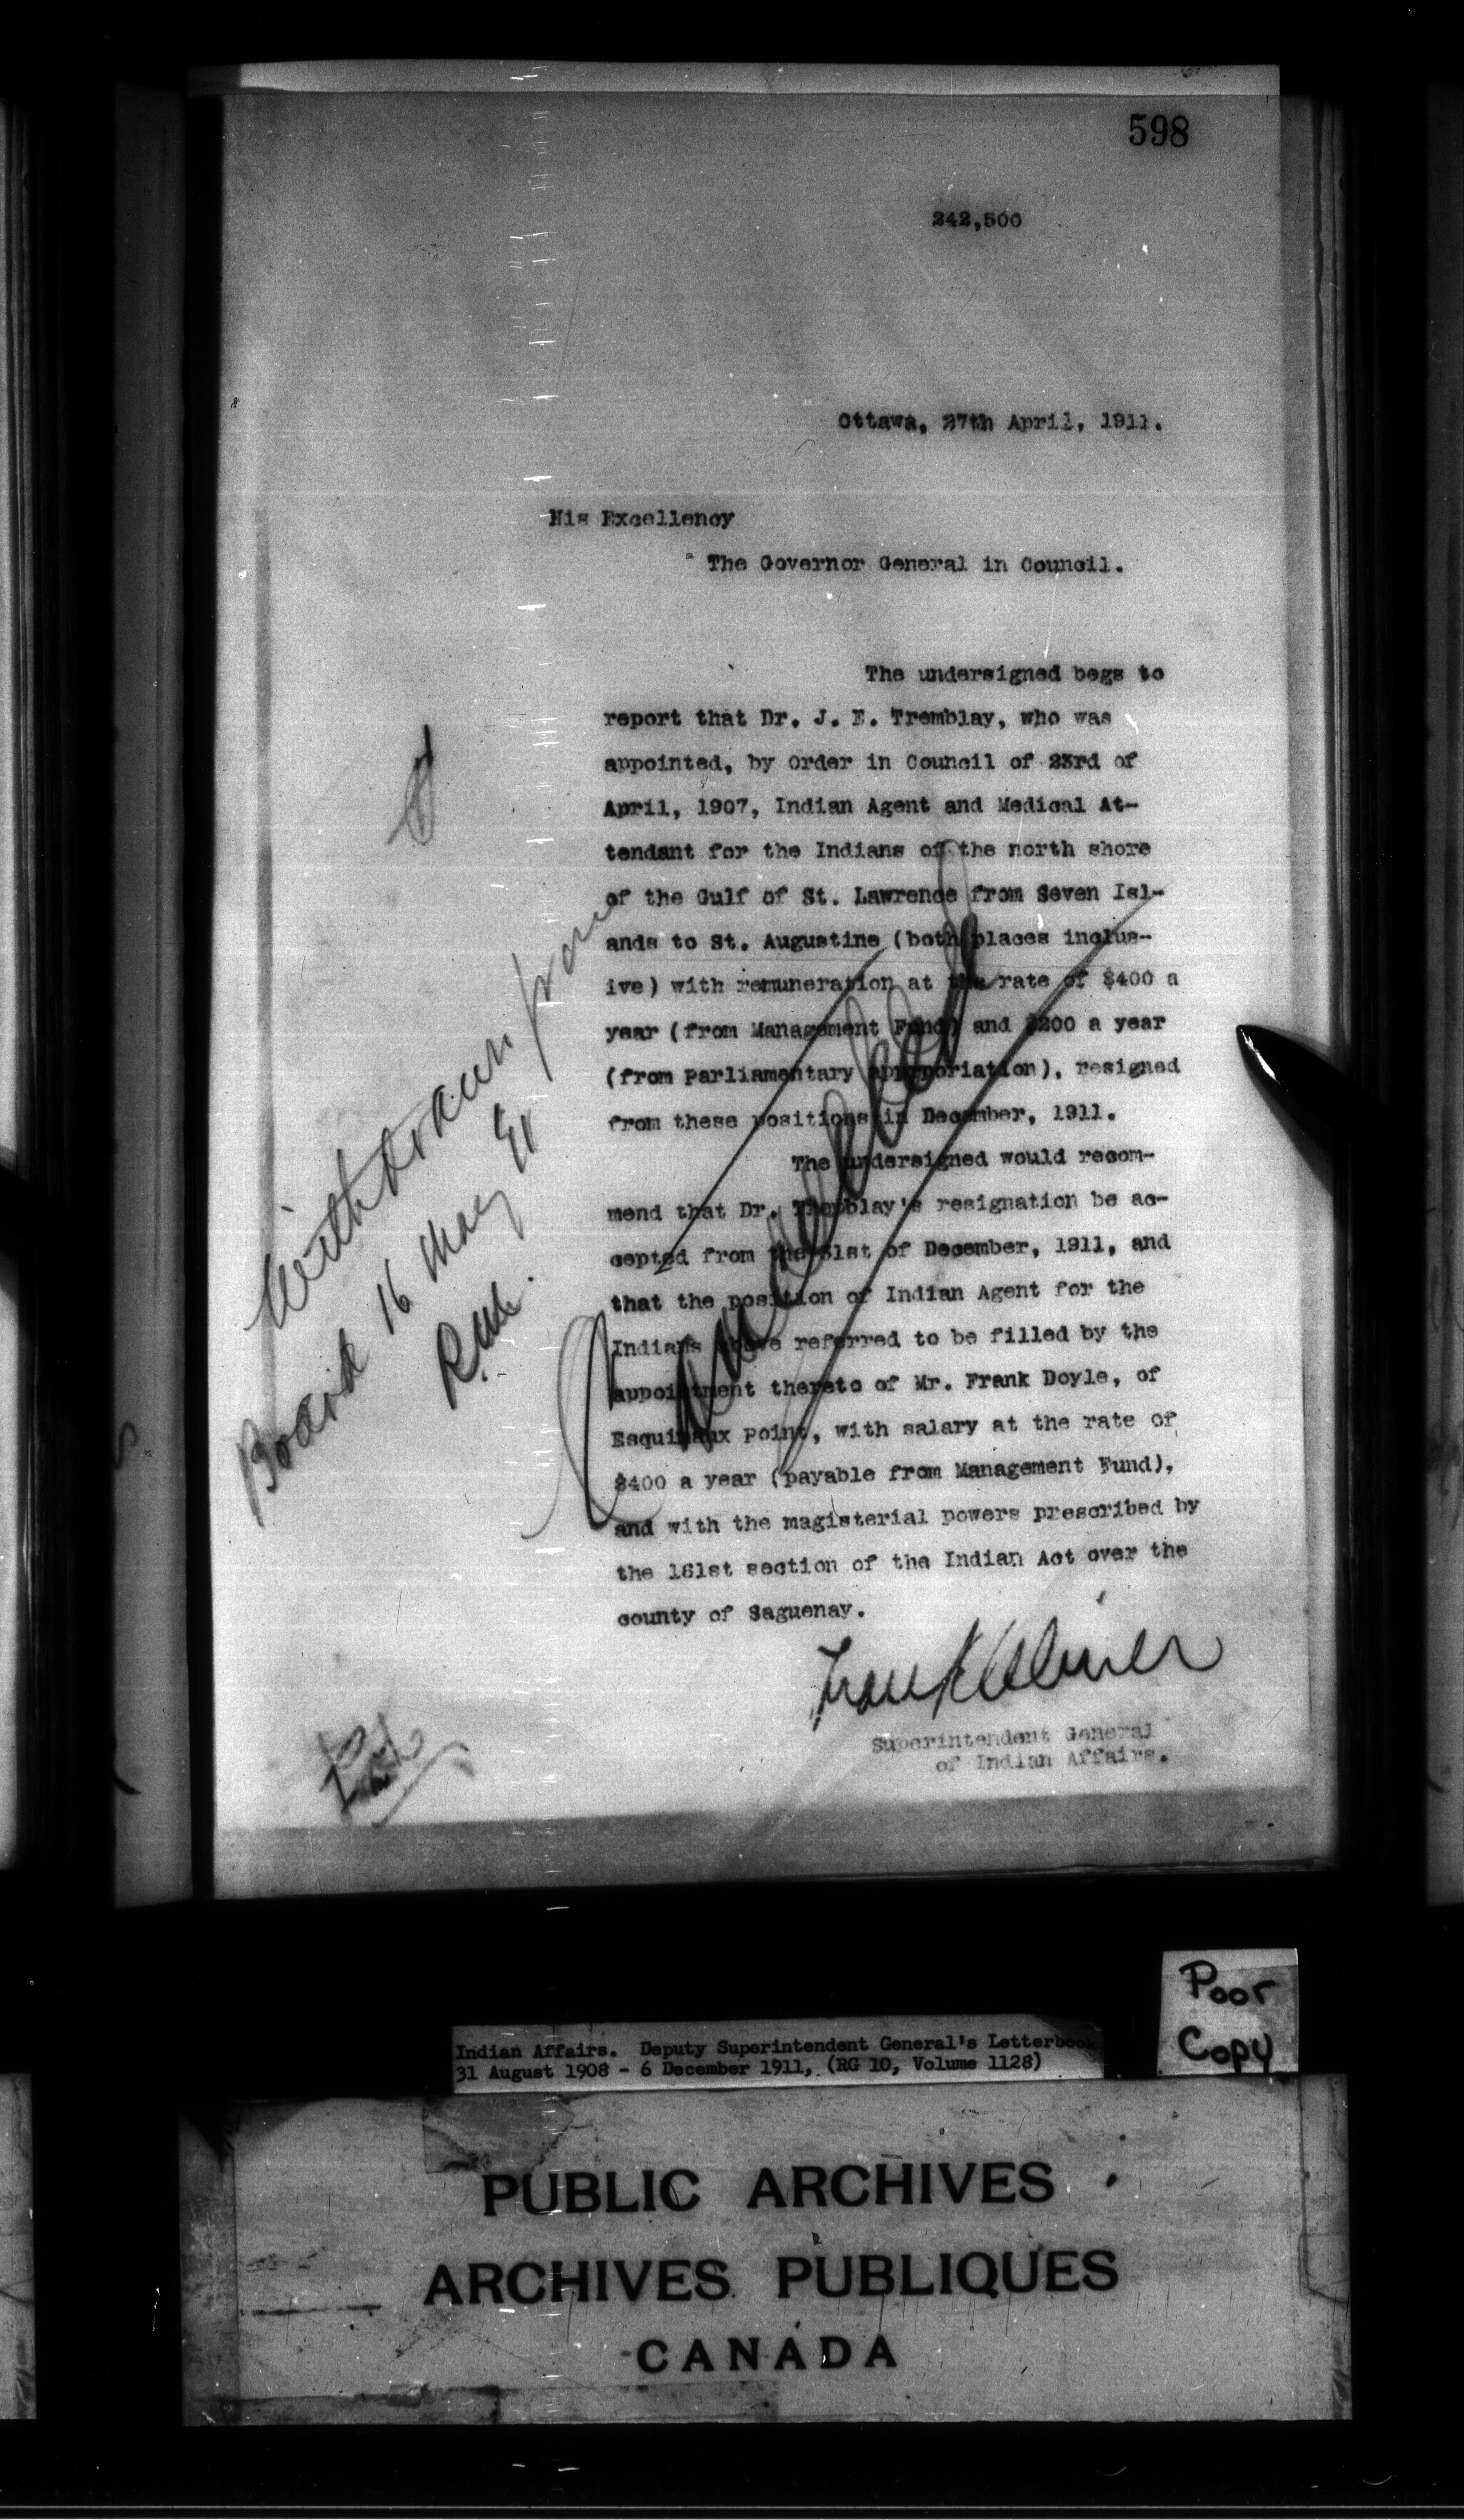 598
242,500
Ottawa, 27th April, 1911.
His Excellency
The Governor General in Council.
The undersigned begs to
report that Dr. J. E. Tremblay, who was
appointed, by Order in Council of 23rd of
April, 1907, Indian Agent and Medical At-
tendant for the Indians of the north shore
of the Gulf of St. Lawrence from Seven Isl-
ands to St. Augustine (both places inclus-
ive) with remuneration at the rate of $400 a
year (from Management Fund) and $200 a year
(from Parliamentary appropriation), resigned
from these positions in December, 1911.
The undersigned would recom-
mend that Dr. Tremblay's resignation be ac-
cepted from the 31st of December, 1911, and
that the position of Indian Agent for the
Indians above referred to be filled by the
appointment thereto of Mr. Frank Doyle, of
Esquimaux Point, with salary at the rate of
$400 a year (payable from Management Fund),
and with the magisterial powers prescribed by
the 161st section of the Indian Act over the
county of Saguenay.
Frank Oliver
Superintendent General
of Indian Affairs.
Withdrawn from
Board 16 May 11
Cancelled
Poor
Copy
Indian Affairs. Deputy Superintendent General's Letterbook
31 August 1908 - 6 December 1911, (RG 10, Volume 1128)
PUBLIC ARCHIVES
ARCHIVES PUBLIQUES
CANADA